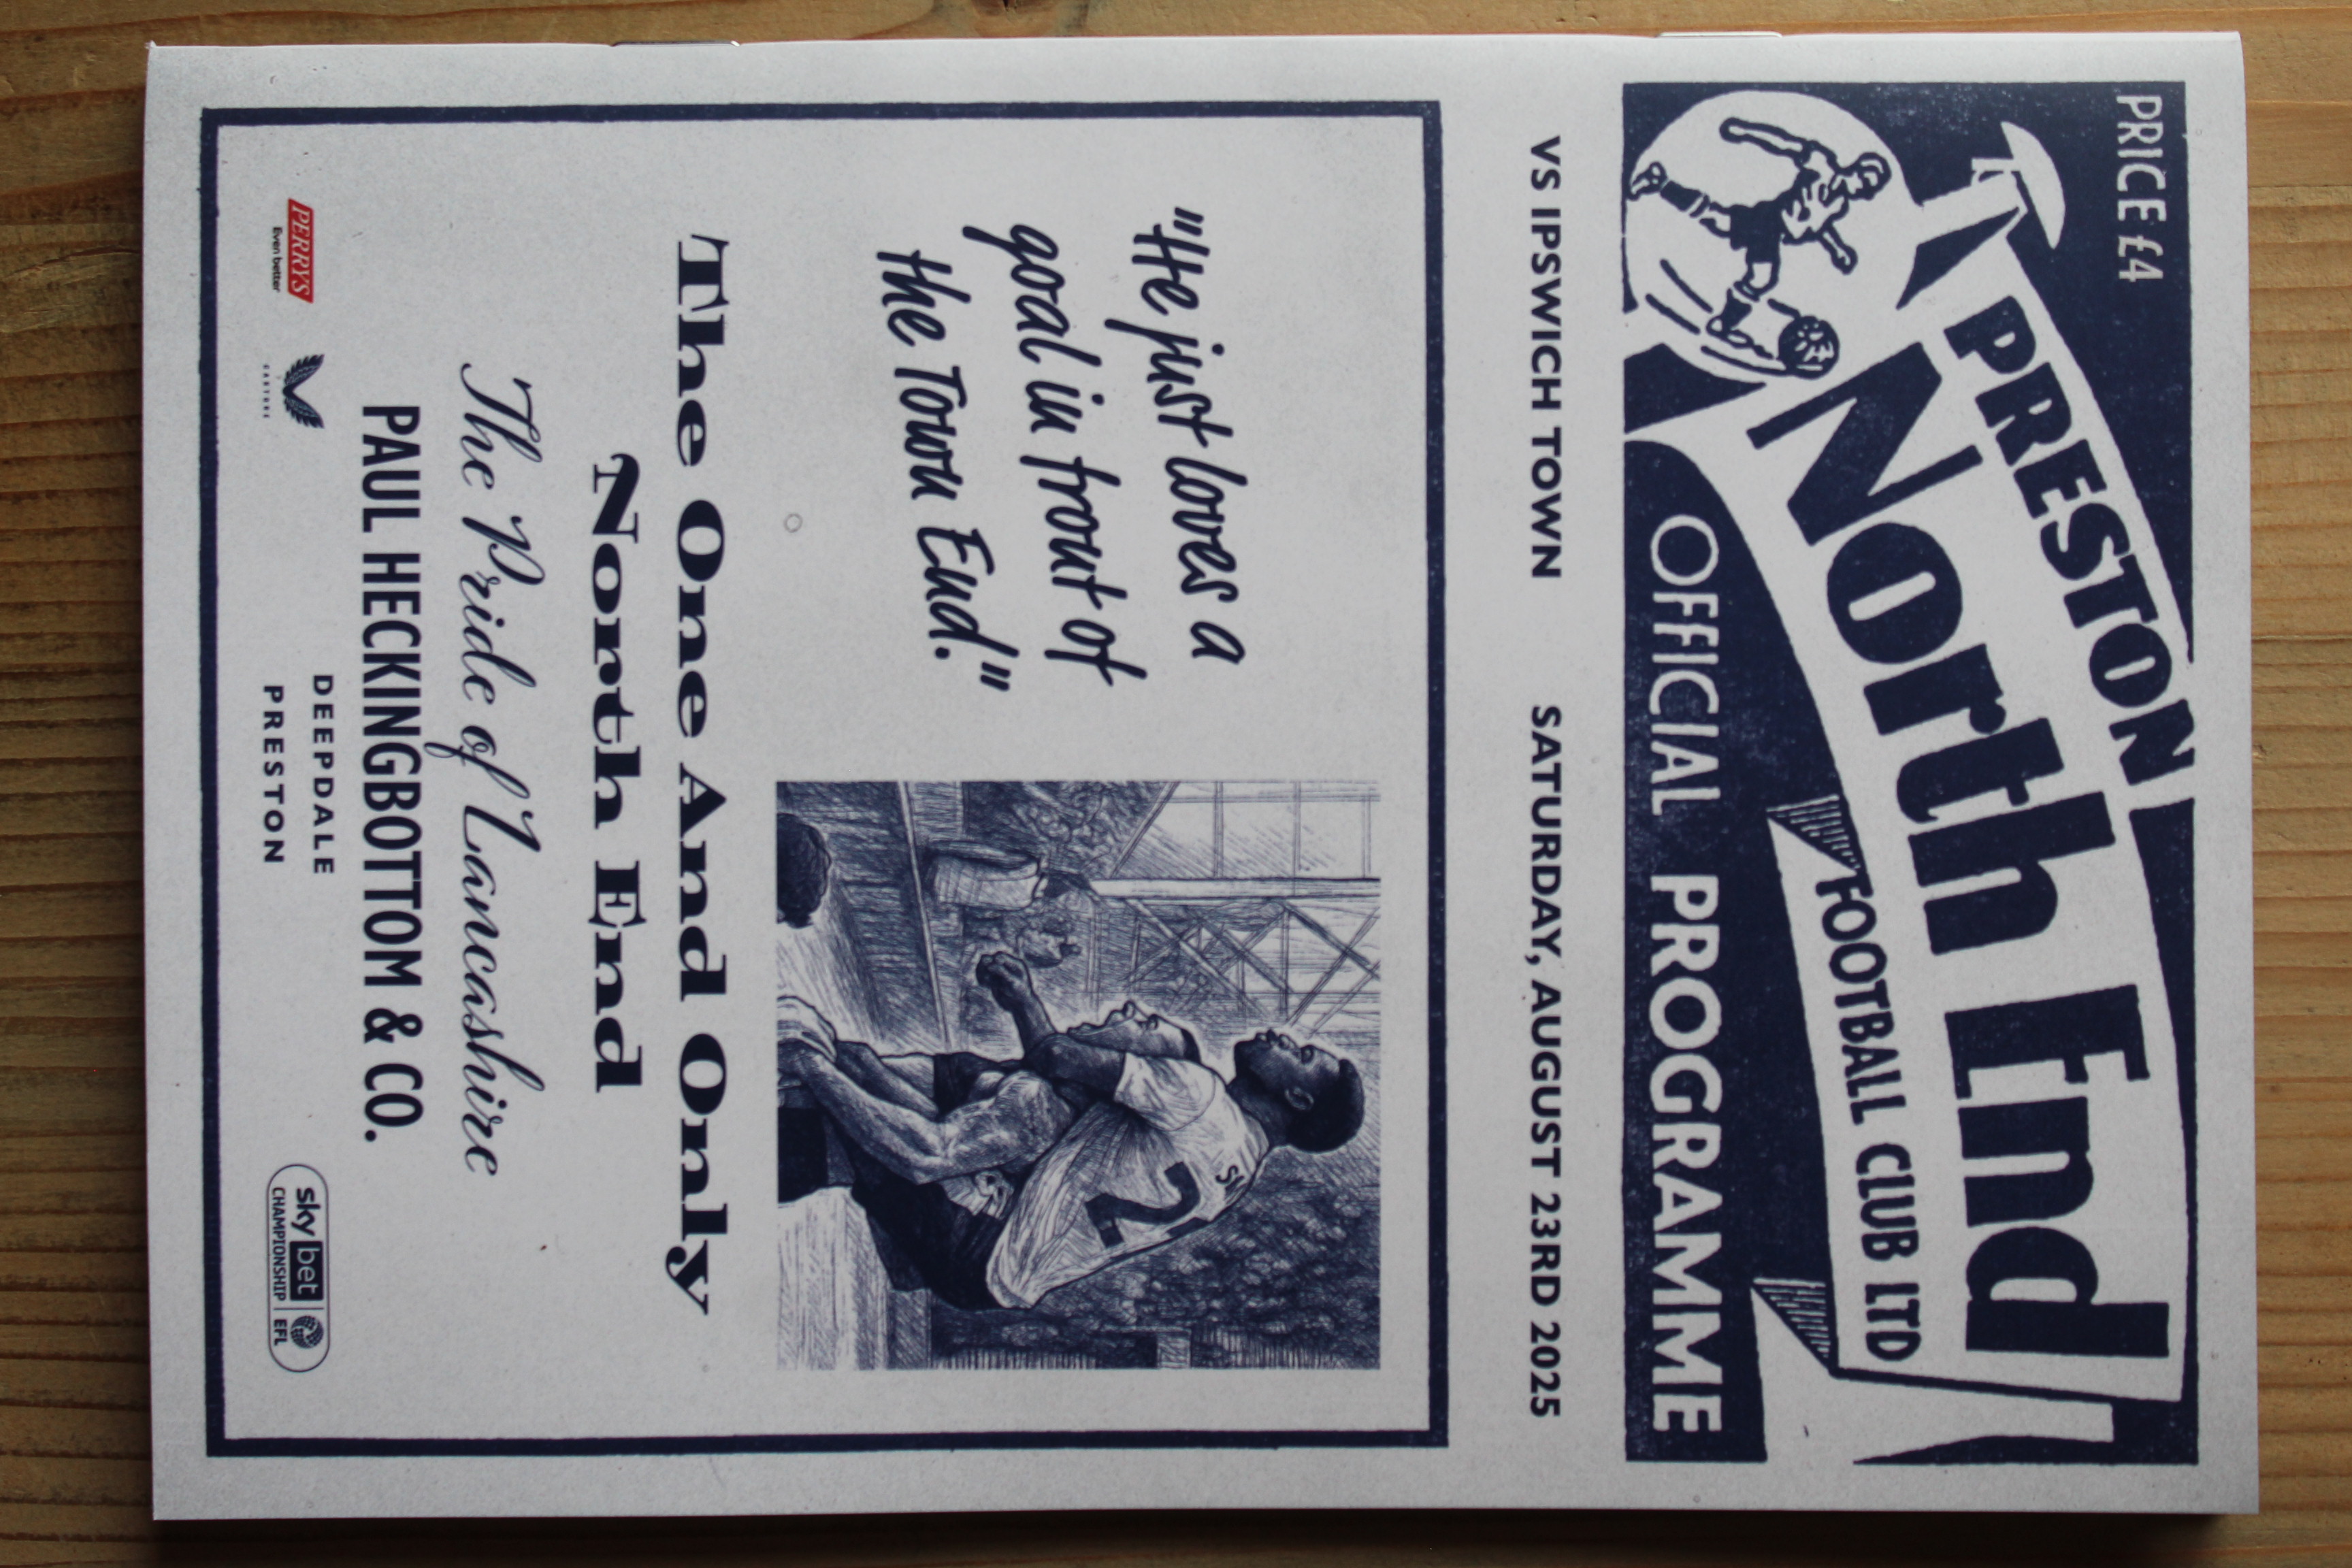 PRICE £4
PRESTON
North End
FOOTBALL CLUB LTD
OFFICIAL PROGRAMME
VS IPSWICH TOWN SATURDAY, AUGUST 23RD 2025
"He just loves a
goal in front of
the Town End."
2
The One And Only
North End
The Pride of Lancashire
PAUL HECKINGBOTTOM & CO.
PERRYS
Even better
CASTORE
DEEPDALE
PRESTON
sky bet
CHAMPIONSHIP EFL